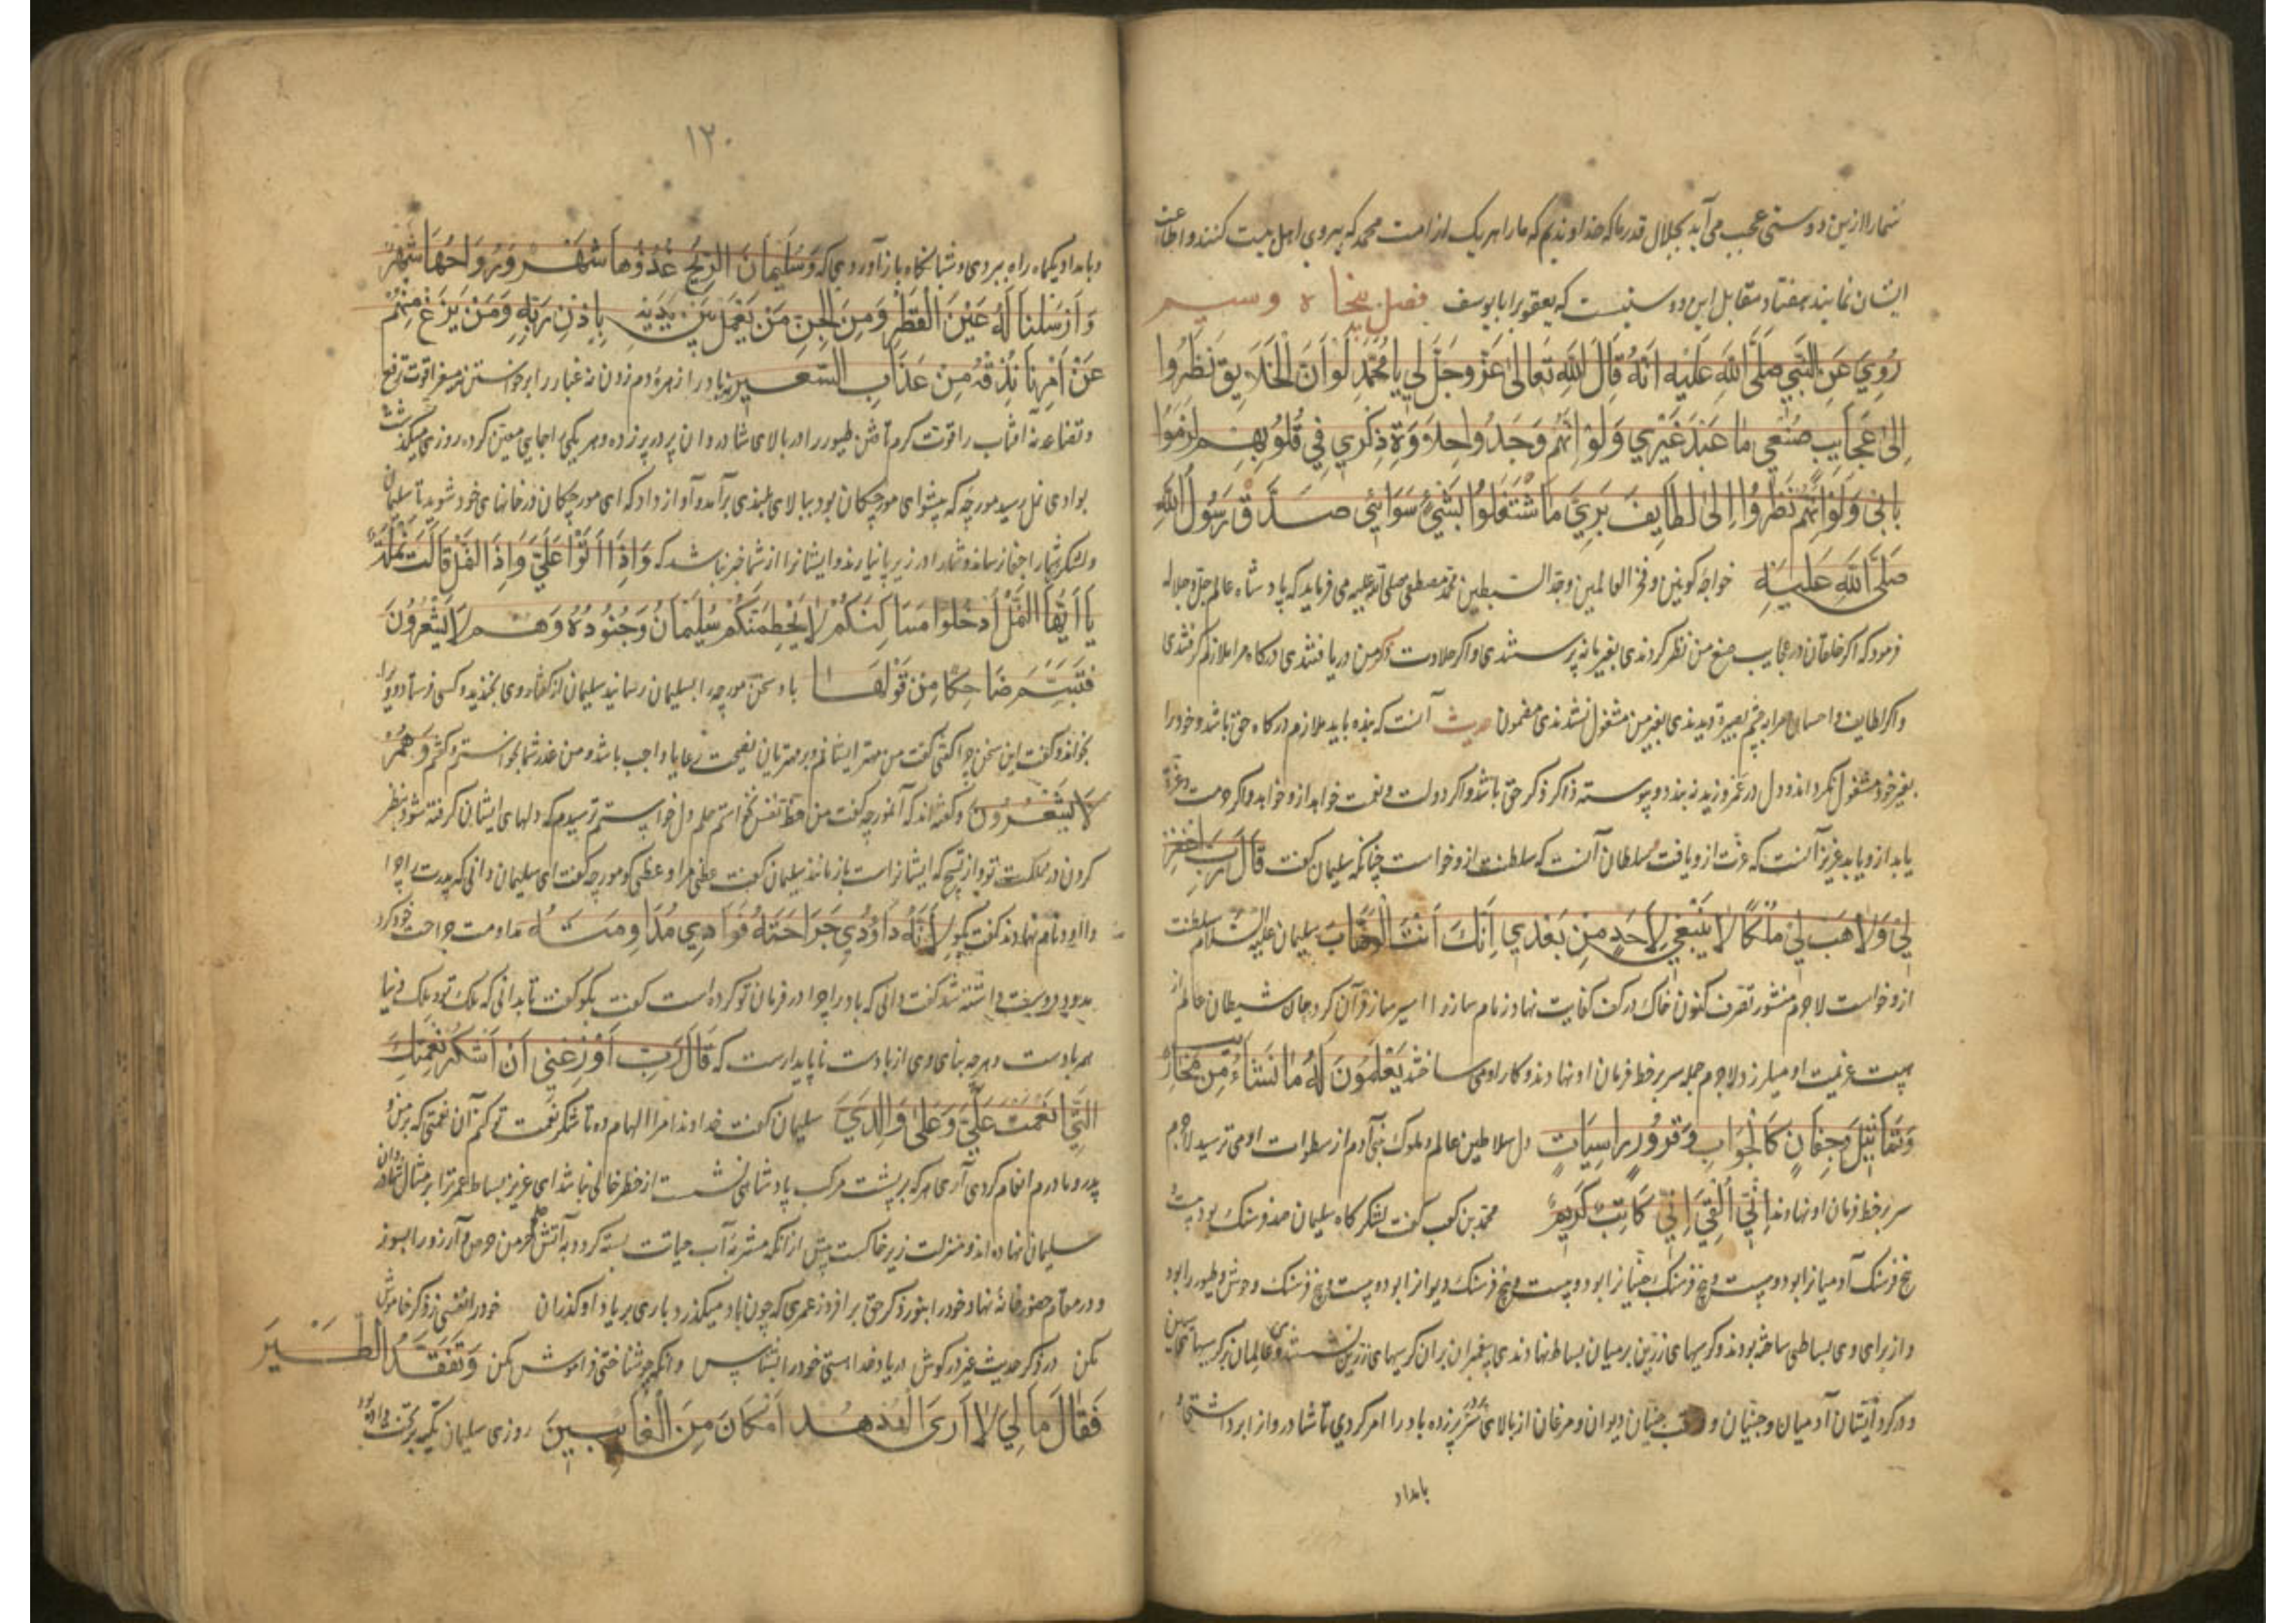 شما را ازین دوستی عجب می آید بجلال قدر ما که خداوندیم که ما را هر یک از امت محمد که پیروی اهل بیت کنند و اطاعت
ایشان نمایند هفتاد مقابل این دوستیست که یعقوب را با یوسف فصل پنجاه و سیم
رُوِيَ عَنِ النَّبِي صَلَّى اللَّهِ عَلَيْهِ اَنَّهُ قَالَ اللَّهِ تَعَالىٰ عَزَّوجَلَّ لي يا مُحَمَّدِ لَوْ اَنَّ الْخَلَايِقَ نَظَرُوا
اِلىٰ عَجَايِبِ صُنْعِي مٰا عَبَدَ غَيْرِي وَلَوْ اَنَّهُمْ وَجَدُوا حِلاَوَةِ ذِكْرِي فِي قُلُوبِهِمْ لَزِمُوا
بابي وَلَوْ اَنَّهُم نَظَرُوا اِلىٰ لطَايِفَ بَرِيَّ مَا اشْتَغَلُوا بِشَيْءٍ سَوَائِي صَدَّقَ رَسُولُ اللّٰهِ
صَلَّى اللّٰهِ عَلَيْهِ خواجه کونین و فخر العالمین و جد السبطین محمد مصطفی صلی الله علیه می فرماید که پادشاه عالم جل جلاله
فرمود که اگر خلقان در عجایب صنع من نظر کردندی بغیر ما نه پرستندی و اگر حلاوت ذکر من دریافتندی درگاه مرا ملازم گرفتندی
و اگر لطایف و احسان مرا به چشم بصیرت دیدندی بغیر من مشغول نشدندی مضمون حدیث آنست که بنده باید ملازم درگاه حق باشد و خود را
بغیر خود مشغول نگرداند و دل در غمز و زید نه بندد و پیوسته ذاکر ذکر حق باشد و اگر دولت و نعمت خواهد ازو خواهد و اگر حرمت و عزت
یابد ازو یابد عزیز آنست که عزت ازو یافت سلطان آنست که سلطنت ازو خواست چنانکه سلیمان گفت قَالَ رَبِّ اغْفِرْ
لِي وَلاٰ هَبْ لِي مُلْكًا لاٰ يَنْبَغِي لِاَحَدٍ مِنْ بَعْدِي اِنَّكَ اَنْتَ الْوَهَّابَ سلیمان علیه السلام سلطنت
ازو خواست لاجرم منشور تصرف کنون خاک در کف کفایت نهاد زمام ساز و را اسیر ساز و آن کرد جان شیطان عالم از
هیبت عزیمت او میلرزد لاجرم جمله سر بر خط فرمان او نهادند و کار او می ساختند يَعْلَمُونَ لَهُ مٰا نَشَاءُ مِنْ مَحَارِيبَ
وَتَمَاثِيلَ وَجِفَانٍ كَالْجَوَابِ وَقُدُورٍ رَاسِيَاتٍ دل سلاطین عالم و ملوک بنی آدم از سطوات او می ترسید لاجرم
سر بر خط فرمان او نهادند اِنِّي اُلْقِيَ اِلَيَّ كَاتِبٌ كَرِيمٌ محمد بن کعب گفت لشکرگاه سلیمان صد فرسنگ بود بیست و
پنج فرسنگ آدمیان را بود و بیست و پنج فرسنگ جنیان را بود و بیست و پنج فرسنگ دیوان را بود و بیست و پنج فرسنگ وحوش و طیور را بود
و از برای وی بساطی ساخته بودند و کرسیهای زرین بر میان بساط نهادندی پیغمبران بر آن کرسیهای زرین نشستندی و عالمان بر کرسیهای سیمین
و در گرد ایشان آدمیان و جنیان و در عقب جنیان دیوان و مرغان از بالای سر پر زده باد را امر کردی تا شادروان از ابر داشتی و
بامداد
۱۲۰
و بامداد یکماه راه ببردی و شبانگاه باز آوردی که وَسُلَيْمَانَ الرِّيْحَ غُدُوُّهَا شَهْرٌ وَرَوَاحُهَا شَهْرٌ
وَاَرْسَلْنَا لَهُ عَيْنَ الْقِطْرِ وَمِنَ الْجِنِّ مَنْ يَعْمَلُ بَيْنَ يَدَيْهِ بِاِذْنِ رَبِّهِ وَمَنْ يَزِغْ مِنْهُمْ
عَنْ اَمْرِنَا نُذِقْهُ مِنْ عَذَابِ السَّعِيرِ نه باد را زهره دم زدن نه غبار را برخواستن نه سفر را قوت ترفع
و تقاعد نه آفتاب را قوت گرم تافتن طیور را در بالای شادروان پر در پر زده و هر یکی را جایی معین کرده روزی میگذشت
بوادی نمل رسید مورچه که پیشوای مورچگان بود ببالای بلندی برآمد و آواز داد که ای مورچگان در خانهای خود شوید تا سلیمان
و لشکر شما را جفا نرساند و شما را در زیر پا نیارند و ایشانرا از شما خبر نباشد که وَاِذَا اَتَوْا عَلَيَّ وَاِذَا النَّمْلِ قَالَتْ نَمْلَةٌ
يَا اَيُّهَا النَّمْلُ اَدْخُلُوا مَسَاكِنَكُمْ لاٰ يَحْطِمَنَّكُمْ سُلَيْمَانُ وَجُنُودُهُ وَهُمْ لاٰ يَشْعُرُونَ
فَتَبَسَّمَ ضَاحِكًا مِنْ قَوْلِهَا باد سخن مورچه را بسلیمان رسانید سلیمان از گفتار وی بخندید و کسی فرستاد و ویرا
بخواند و گفت این سخن چرا گفتی گفت من مهتر ایشانم و بر مهتران نصیحت رعایا واجب باشد و من عذر شما بخواستم و گفتم وَهُمْ
لاٰ يَشْعُرُونَ و گفته اند که آنمورچه گفت من حفظ نفس نخواستم حلم دل خواستم ترسیدم که دلهای ایشان گرفته شود بنظر
کردن در مملکت تو و از تسبیح که ایشانراست باز مانند سلیمان گفت عظنی مرا وعظی گو مورچه گفت ای سلیمان دانی که پدرت را چرا
داود نام نهادند گفت بگو لِاَنَّهُ دَاوُدُي جَرَاحَتَهُ فَوَادِي مُدَاوِمَتَهُ مداومت جراحت خود کرد
بدود دوست داشته شد گفت دانی که باد را چرا در فرمان تو کرده است گفت بگو گفت تا بدانی که ملک تو و ملک دنیا
همه بادست و هر چه بنای وی از بادست ناپایدارست که قَالَ رَبِّ اَوْزِعْنِي اَنْ اَشْكُرَ نِعْمَتِكَ
الَّتِي اَنْعَمْتَ عَلَيَّ وَعَلىٰ وَالِدَيَّ سلیمان گفت خداوندا مرا الهام ده تا شکر نعمت تو کنم آن نعمتی که بر من و
پدر و مادرم انعام کردی آری هر که بر پشت مرکب پادشاهی نشست از خطر خالی نباشد ای عزیز بساط عمر ترا بر مثال شادروان
سلیمان نهاده اند و منزلت زیر خاکست پیش از آنکه مشربه آب حیاتت بسته گردد به آتش خرمن حرص و آرزو را بسوز
و در مقام حضور خانه نهاد خود را بنور ذکر حق برافروز عمری که چون باد میگذرد باری بر یاد او گذران خود را نفسی ز ذکر خاموش
مکن در ذکر حدیث غیر در گوش در یاد خدا هستی خود را بشناس وانگه چو شناختی فراموش مکن وَتَفَقَّدَ الطَّيْرَ
فَقَالَ مٰا لِيَ لاٰ اَرَىَ الْهُدْهُدَ اَمْ كَانَ مِنَ الْغَائِبِينَ روزی سلیمان تکیه بر تخت داده بود